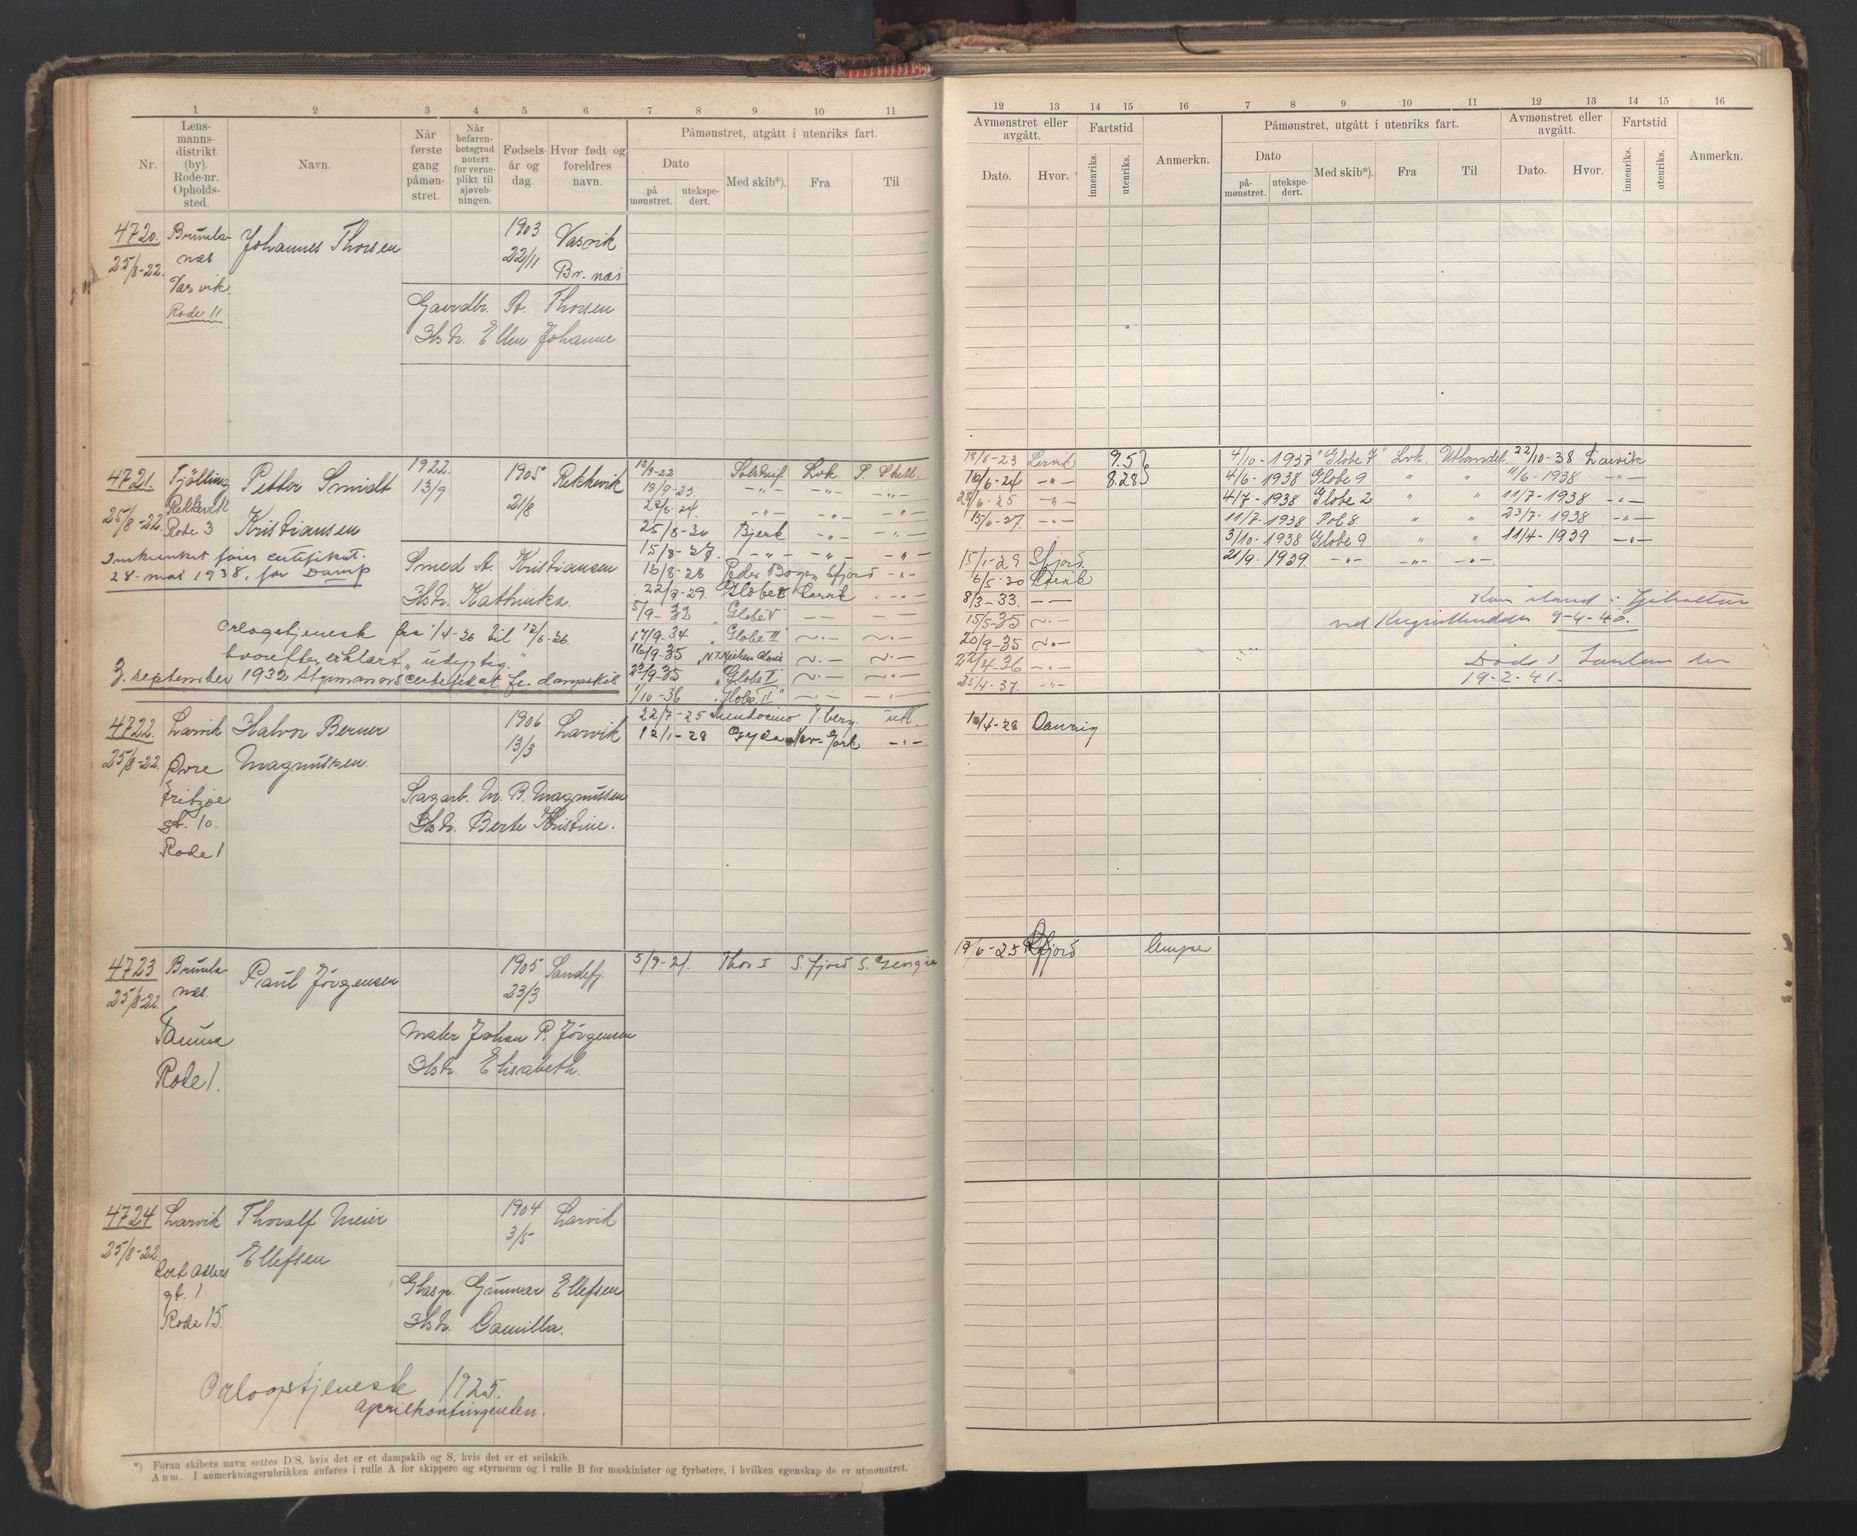 1 2 3 4 5 6 7 8 9 10 11
Nr.
Lens-
manns-
distrikt
(by).
Rode-nr.
Opholds-
sted.
Navn.
Når
første
gang
påmøn-
stret.
Når
befaren-
hetsgrad
notert
for verne-
plikt til
sjøveb-
ningen.
Fødsels-
år og
dag
Hvor født og
foreldres
navn.
Påmønstret, utgått i utenriks fart.
Dato
på
mønstret.
utekspe-
dert.
Med skib*).
Fra
Til
4720. Brunla- Johannes Thorsen 1903 Vasvik
25/8-22. næs 22/11 Br. næs
Vasvik
Rode 11
Gaardbr. A. Thorsen
Hstr. Ellen Johanne
4721. Tjølling Petter Smidt 1922. 1905 Rekkevik
Rekkevik 13/9 21/8
25/8-22. Rode 3 Kristiansen
certifikat.
24. mai 1938. for Damp
Smed A. Kristiansen
Hstr. Kathinka.
orlogstjeneste fra 1/4-26 til 12/6-26
hvorefter erklært "udygtig."
september 1932 styrmannscertifikat for dampskib
13/9-22 Solstreif Lvk. S. Shetl.
13/9-23. -"- -"- -"-
24/6-24. -"- -"- -"-
25/8-26 Bjerk -"- -"-
15/8-27. -"- -"- -"-
16/8-28 Peder Bogen Sfjord -"-
22/8-29. Globe Larvik -"-
5/9-32 "Globe V — —
17/9-34 "Globe II" -"- -"-
16/9-35 "N.T. Nielsen Alonso -"- -"-
23/9-35 "Globe -"- -"-
1/10-36 "Globe II" -"- -"-
4722. Larvik Halvor Berner 1906 Larvik
25/8-22. Øvre Magnussen 13/3
Fritzøe
gt. 10.
Rode 1
Sagarb. M. B. Magnussen
Hstr. Berte Kristine.
22/7-25 Mendocino T.berg. utl.
12/1-28 Gyda New-York -"-
4723 Brunla Paul Jörgensen 1905 Sandefj.
25/8-22. næs 23/3
Fauna
Rode 1.
Maler Johan P. Jörgensen
Hstr. Elisabeth.
5/9-24. Thor I S.fjord S. Georgia
4724 Larvik Thoralf Meier 1904 Larvik
25/8-22 Ellefsen 3/5
Cort Adlers
gt. 1
Rode 15.
Glasp. Gunnar Ellefsen
Hstr. Camilla.
Orlogstjeneste 1925.
aprilkontingenten.
*) Foran skibets navn settes D/S, hvis det er et dampskib og S, hvis det er et seilskib.
Anm. I anmerkningsrubrikken anføres i rulle A for skippere og styrmenn og i rulle B for maskinister og fyrbøtere, i hvilken egenskap de er utmønstret.
12 13 14 15 16 7 8 9 10 11 12 13 14 15 16
Avmønstret eller
avgått.
Dato.
Hvor.
Fartstid
innenriks.
utenriks.
Anmerkn.
Påmønstret, utgått i utenriks fart.
Dato
på-
mønstret.
utekspe-
dert.
Med skib*).
Fra
Til
Avmønstret eller
avgått.
Dato.
Hvor.
Fartstid
innenriks.
utenriks.
Anmerkn.
18/6-23 Larvik 9.5
18/6-24 -"- 8.28
24/6-25 -"-
15/6-27. -"-
15/1-29 Sfjord
6/5-30 Larvik
8/3-33. — —
15/5-35 -"-
20/9-35 -"-
22/4-36 -"-
25/4-37. -"-
4/10-1937 "Globe 7" Lvk. Uthandel 22/10-38 Larvik
4/6-1938 Globe 9 " " 11/6-1938 -"-
4/7-1938 Globe 2 " " 11/7-1938 -"-
11/7-1938 Pol 8 " " 23/7-1938 -"-
3/10-1938 Globe 9 " " 11/4-1939 -"-
21/9-1939. -"- -"- -"-
Kom iland i Gibraltar
ved Krigsutbruddet 9-4-40.
Døde i London den
19-2-41.
1/4-28 Danzig
19/6-25 Sfjord